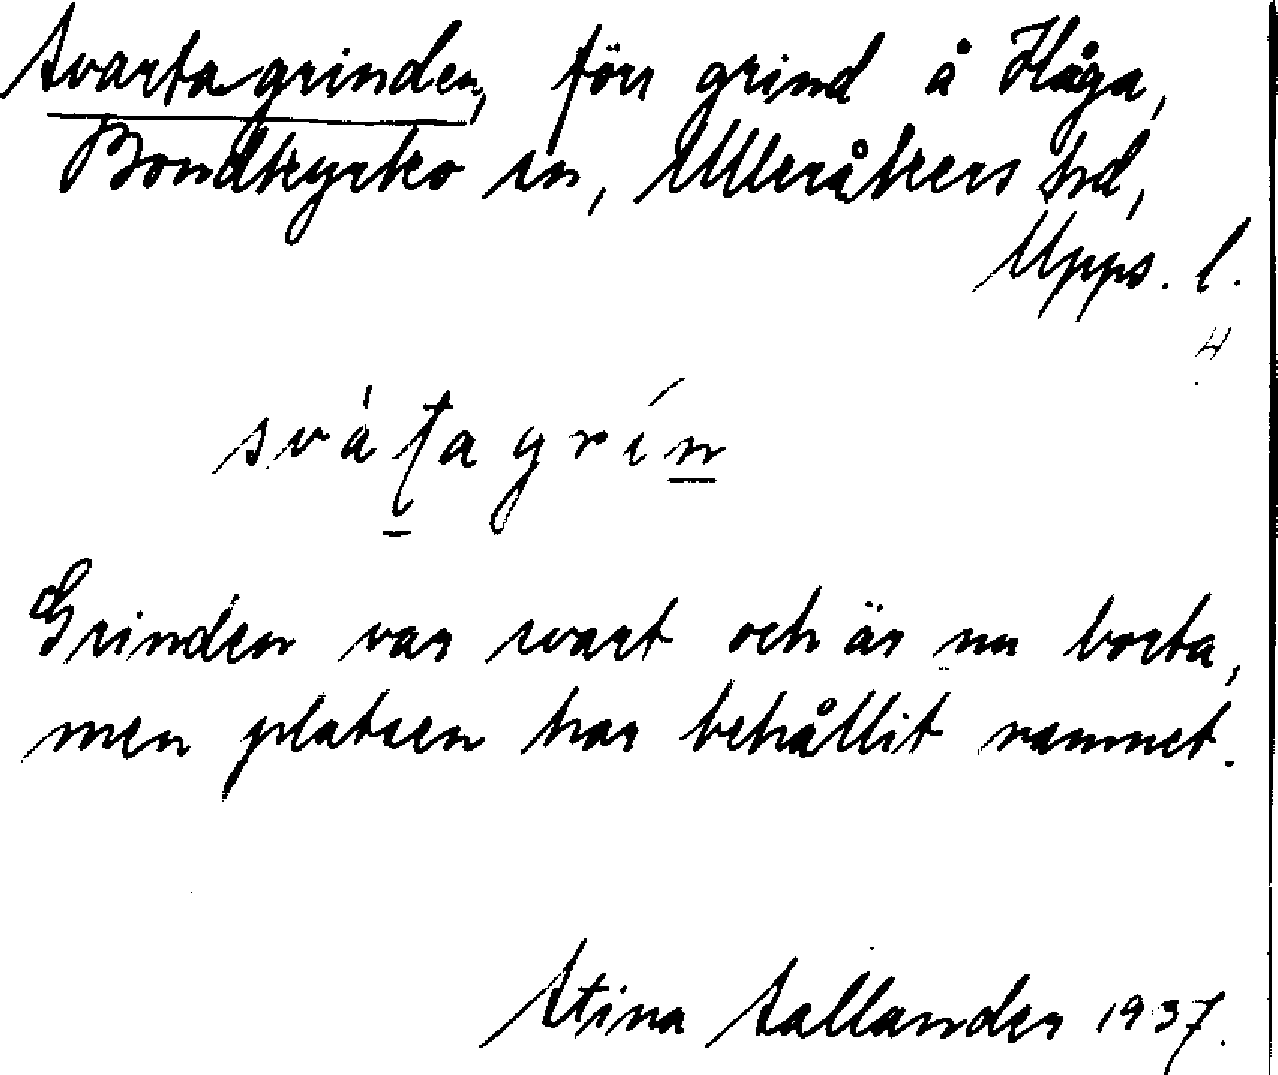 Svartagrinden, förr grind å Håga,
Bondkyrko sn, Ulleråkers hd,
Upps. l.
4
svàʈa grín
Grinden var svart och är nu borta,
men platsen har behållit namnet.
Stina Sallander 1937.